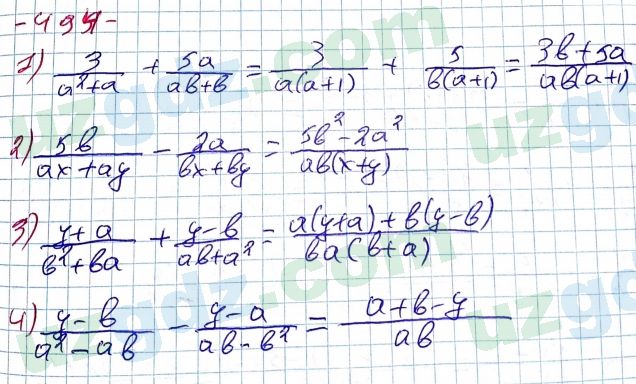 -494-
1) 3/(a²+a) + 5a/(ab+b) = 3/(a(a+1)) + 5/(b(a+1)) = (3b+5a)/(ab(a+1))
2) 5b/(ax+ay) - 2a/(bx+by) = (5b²-2a²)/(ab(x+y))
3) (y+a)/(b²+ba) + (y-b)/(ab+a²) = (a(y+a)+b(y-b))/(ba(b+a))
4) (y-b)/(a²-ab) - (y-a)/(ab-b²) = (a+b-y)/(ab)
uzgdz.com